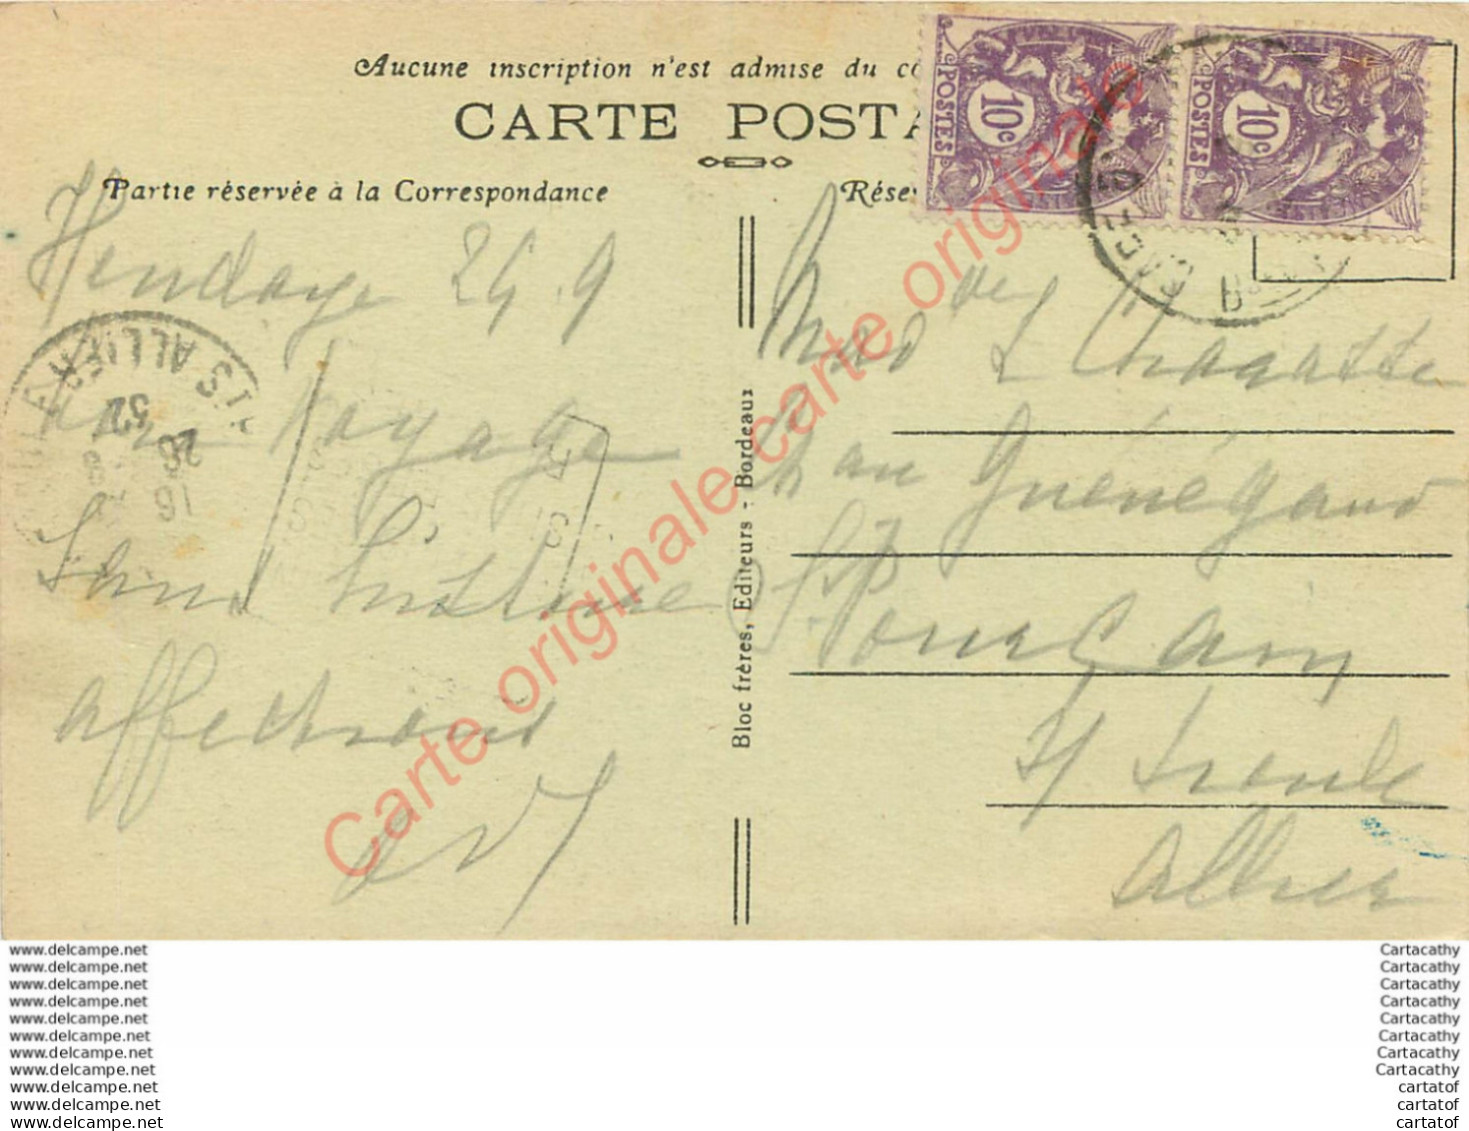 Aucune inscription n'est admise du cô
CARTE POSTA
Partie réservée à la Correspondance
Réser
POSTES
10c
POSTES
10c
Hendaye 24 9
Bon voyage
Sans histoire
affectueux
Mad
Rue Guénégaud
St Pourcain
s/ Sioule
Allier
Bloc frères, Editeurs - Bordeaux
ALLIER
26
32
16
Carte originale carte originale carte originale
www.delcampe.net
www.delcampe.net
www.delcampe.net
www.delcampe.net
www.delcampe.net
www.delcampe.net
www.delcampe.net
www.delcampe.net
www.delcampe.net
www.delcampe.net
www.delcampe.net
Cartacathy
Cartacathy
Cartacathy
Cartacathy
Cartacathy
Cartacathy
Cartacathy
Cartacathy
cartatof
cartatof
cartatof